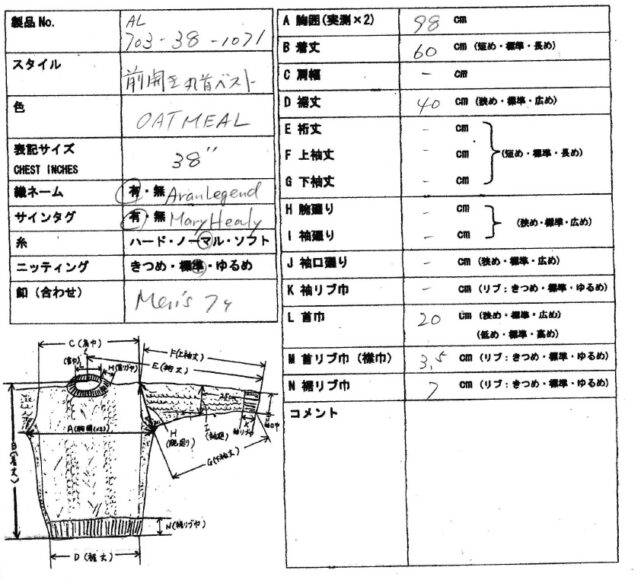 製品No. AL 703-38-1071
スタイル 前開きVネックベスト
色 OATMEAL
表記サイズ CHEST INCHES 38"
織ネーム 有・無 AranLegend
サインタグ 有・無 MaryHealy
糸 ハード・ノーマル・ソフト
ニッティング きつめ・標準・ゆるめ
釦(合わせ) Men's 7ケ
A 胸囲(実測×2) 98 cm
B 着丈 60 cm (短め・標準・長め)
C 肩幅 - cm
D 裾丈 40 cm (狭め・標準・広め)
E 裄丈 - cm
F 上袖丈 - cm (短め・標準・長め)
G 下袖丈 - cm
H 腕廻り - cm
(狭め・標準・広め)
I 袖廻り - cm
J 袖口廻り - cm (狭め・標準・広め)
K 袖リブ巾 - cm (リブ:きつめ・標準・ゆるめ)
L 首巾 20 cm (狭め・標準・広め)
(低め・標準・高め)
M 首リブ巾(襟巾) 3.5 cm (リブ:きつめ・標準・ゆるめ)
N 裾リブ巾 7 cm (リブ:きつめ・標準・ゆるめ)
コメント
C(肩巾)
F(上袖丈)
E(裄丈)
L
(首巾)
M(首リブ巾)
A(胸囲(×2))
B(着丈)
H
(腕廻り)
I
K
袖リブ巾
G(下袖丈)
N(裾リブ巾)
D(裾丈)